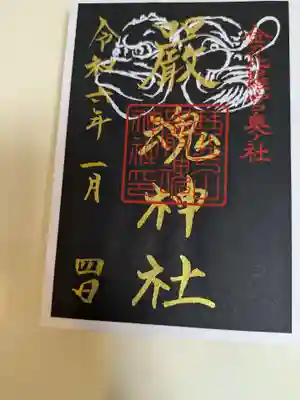 金刀比羅宮奥社
嚴魂神社
令和六年一月四日